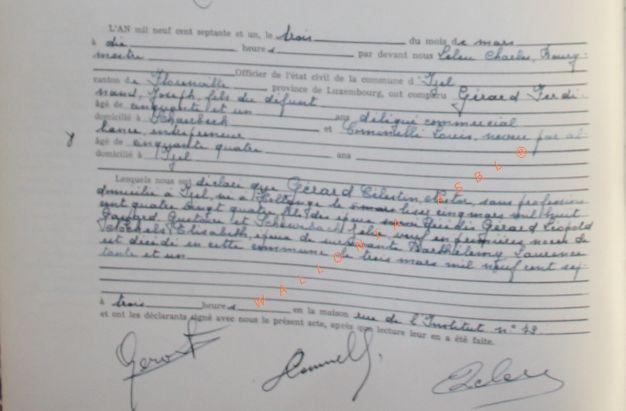 L'AN mil neuf cent septante et un, le trois du mois de mars
à dix heures par devant nous Charles, Bourg-
mestre Officier de l'état civil de la commune d'Izel
canton de Florenville province de Luxembourg, ont comparu Gérard Ferdi-
nand, Joseph, fils du défunt
âgé de cinquante et un ans délégué commercial
domicilié à Schaerbeek et Louis, neveu par al-
liance, entrepreneur
âgé de cinquante quatre ans
domicilié à Izel
Lesquels nous ont déclaré que Gérard Célestin, sans profession
domicilié à Izel, né à le cinq mars mil huit
cent quatre vingt quatre, fils des époux Gérard Léopold
Gustave et veuf en premières noces de
Elisabeth, époux de survivante Barthélemy Laurence
est décédé en cette commune le trois mars mil neuf cent sep-
tante et un
à trois heures en la maison rue de l'Institut n°
et ont les déclarants signé avec nous le présent acte, après que lecture leur en a été faite.
WALLONIA ASBL ®